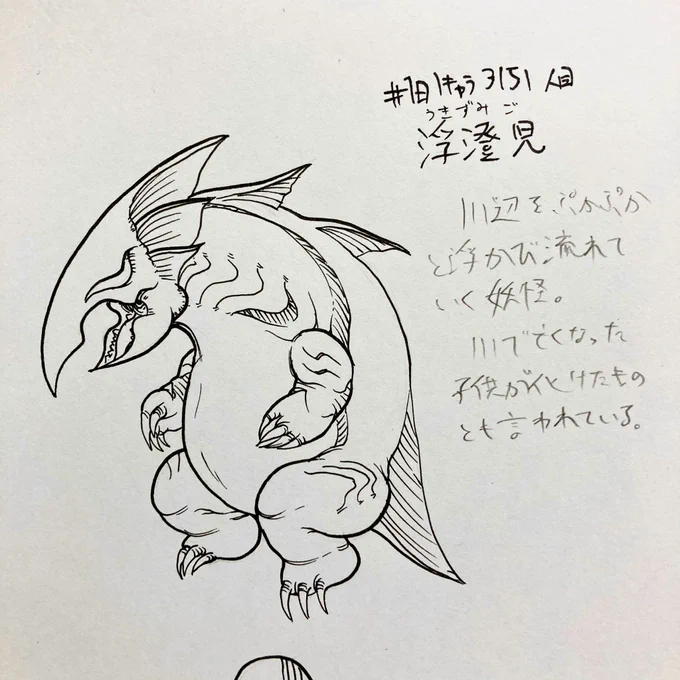 #1日1キャラ3151人目
うきずみご
浮澄児
川辺をぷかぷか
と浮かび流れて
いく妖怪。
川で亡くなった
子供がくとけたもの
とも言われている。